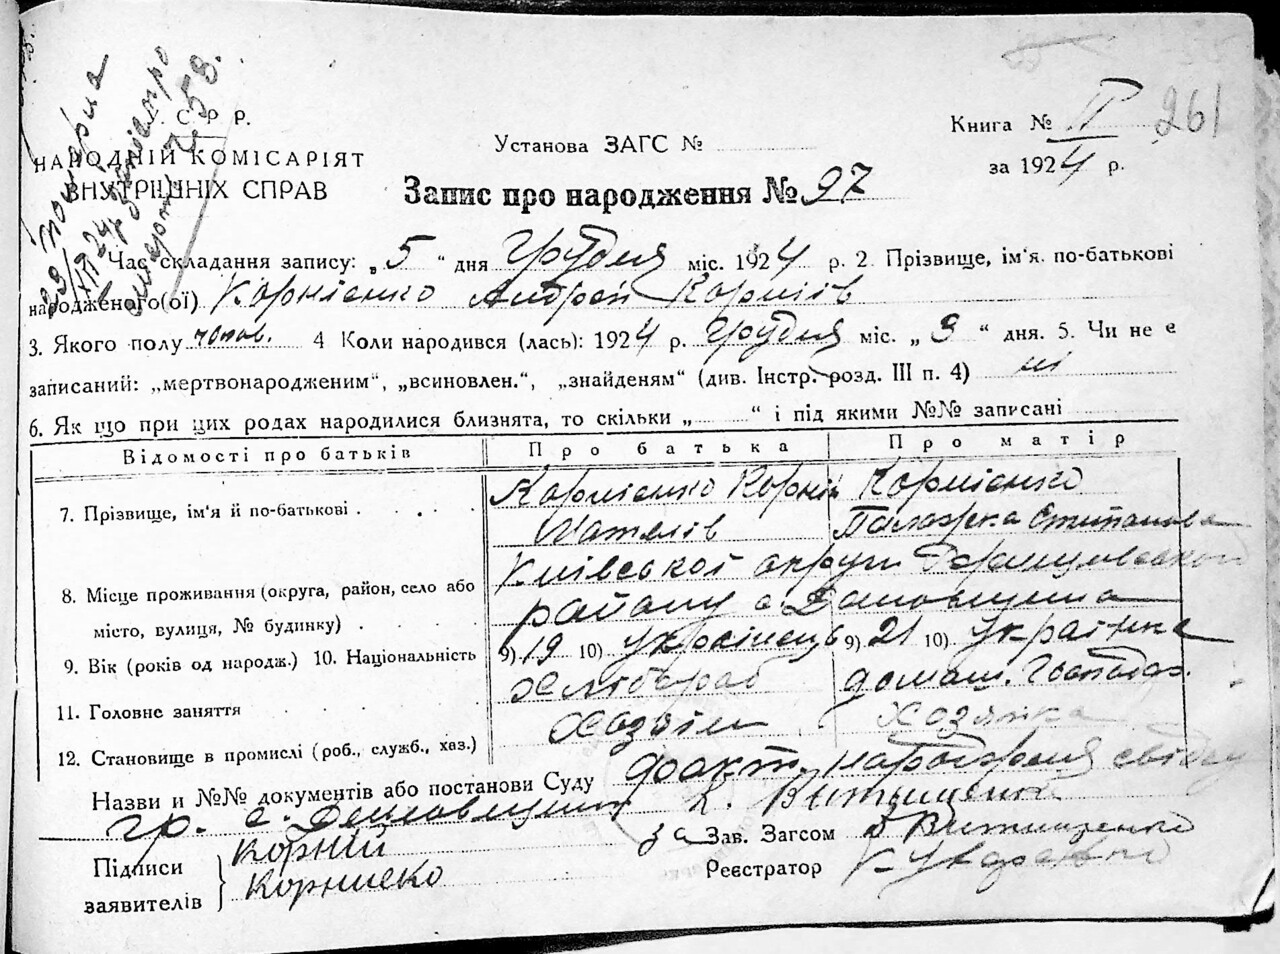 261
Книга № II
С. Р Р.
Установа ЗАГС №
НАРОДНІЙ КОМІСАРІЯТ
за 1924 р.
ВНУТРІШНІХ СПРАВ
Запис про народження № 97
Час складання запису: „5“ дня Грудня міс. 1924 р. 2. Прізвище, ім'я. по-батькові
народженого(ої) Корнієнко Андрей Корніїв
3. Якого полу чолов. 4 Коли народився (лась): 1924 р. Грудня міс. „3“ дня. 5. Чи не є
записаний: „мертвонародженим“, „всиновлен.“, „знайденям“ (див. Інстр. розд. III п. 4) ні
6. Як що при цих родах народилися близнята, то скільки „ “ і під якими №№ записані
Відомості про батьків Про батька Про матір
Корнієнко Корній Корнієнко
7. Прізвище, ім'я й по-батькові . . . . .
Палажка Степанова
Київської округи
8. Місце проживання (округа, район, село або
району с.
місто, вулиця, № будинку) . .
9. Вік (років од народж.) 10. Національність 9) 19 10) Українець 9) 21 10) Українка
Хлібороб домаш. Господар.
11. Головне заняття . . . . .
Хозяїн Хозяйка
12. Становище в промислі (роб., служб., хаз.)
Назви и №№ документів або постанови Суду факт. народження
гр. с. К. Витищенко
Підписи заявителів Корній Корниеко
за Зав. Загсом Витищенко
Реєстратор